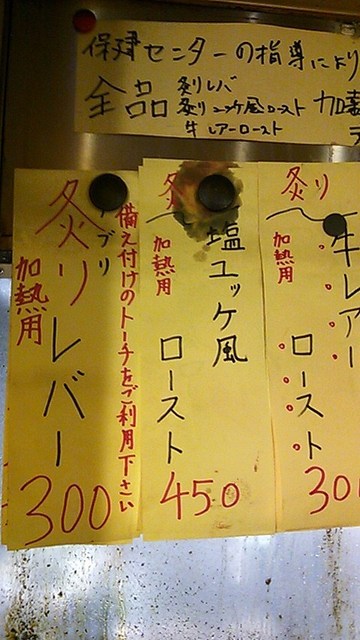 保健センターの指導により
全品
炙りレバ
炙りユッケ風ロースト
牛レアーロースト
加熱
炙り
アブリ
レバー
加熱用
備え付けのトーチをご利用下さい
300
塩ユッケ風
ロースト
加熱用
450
炙り
牛レアー
ロースト
加熱用